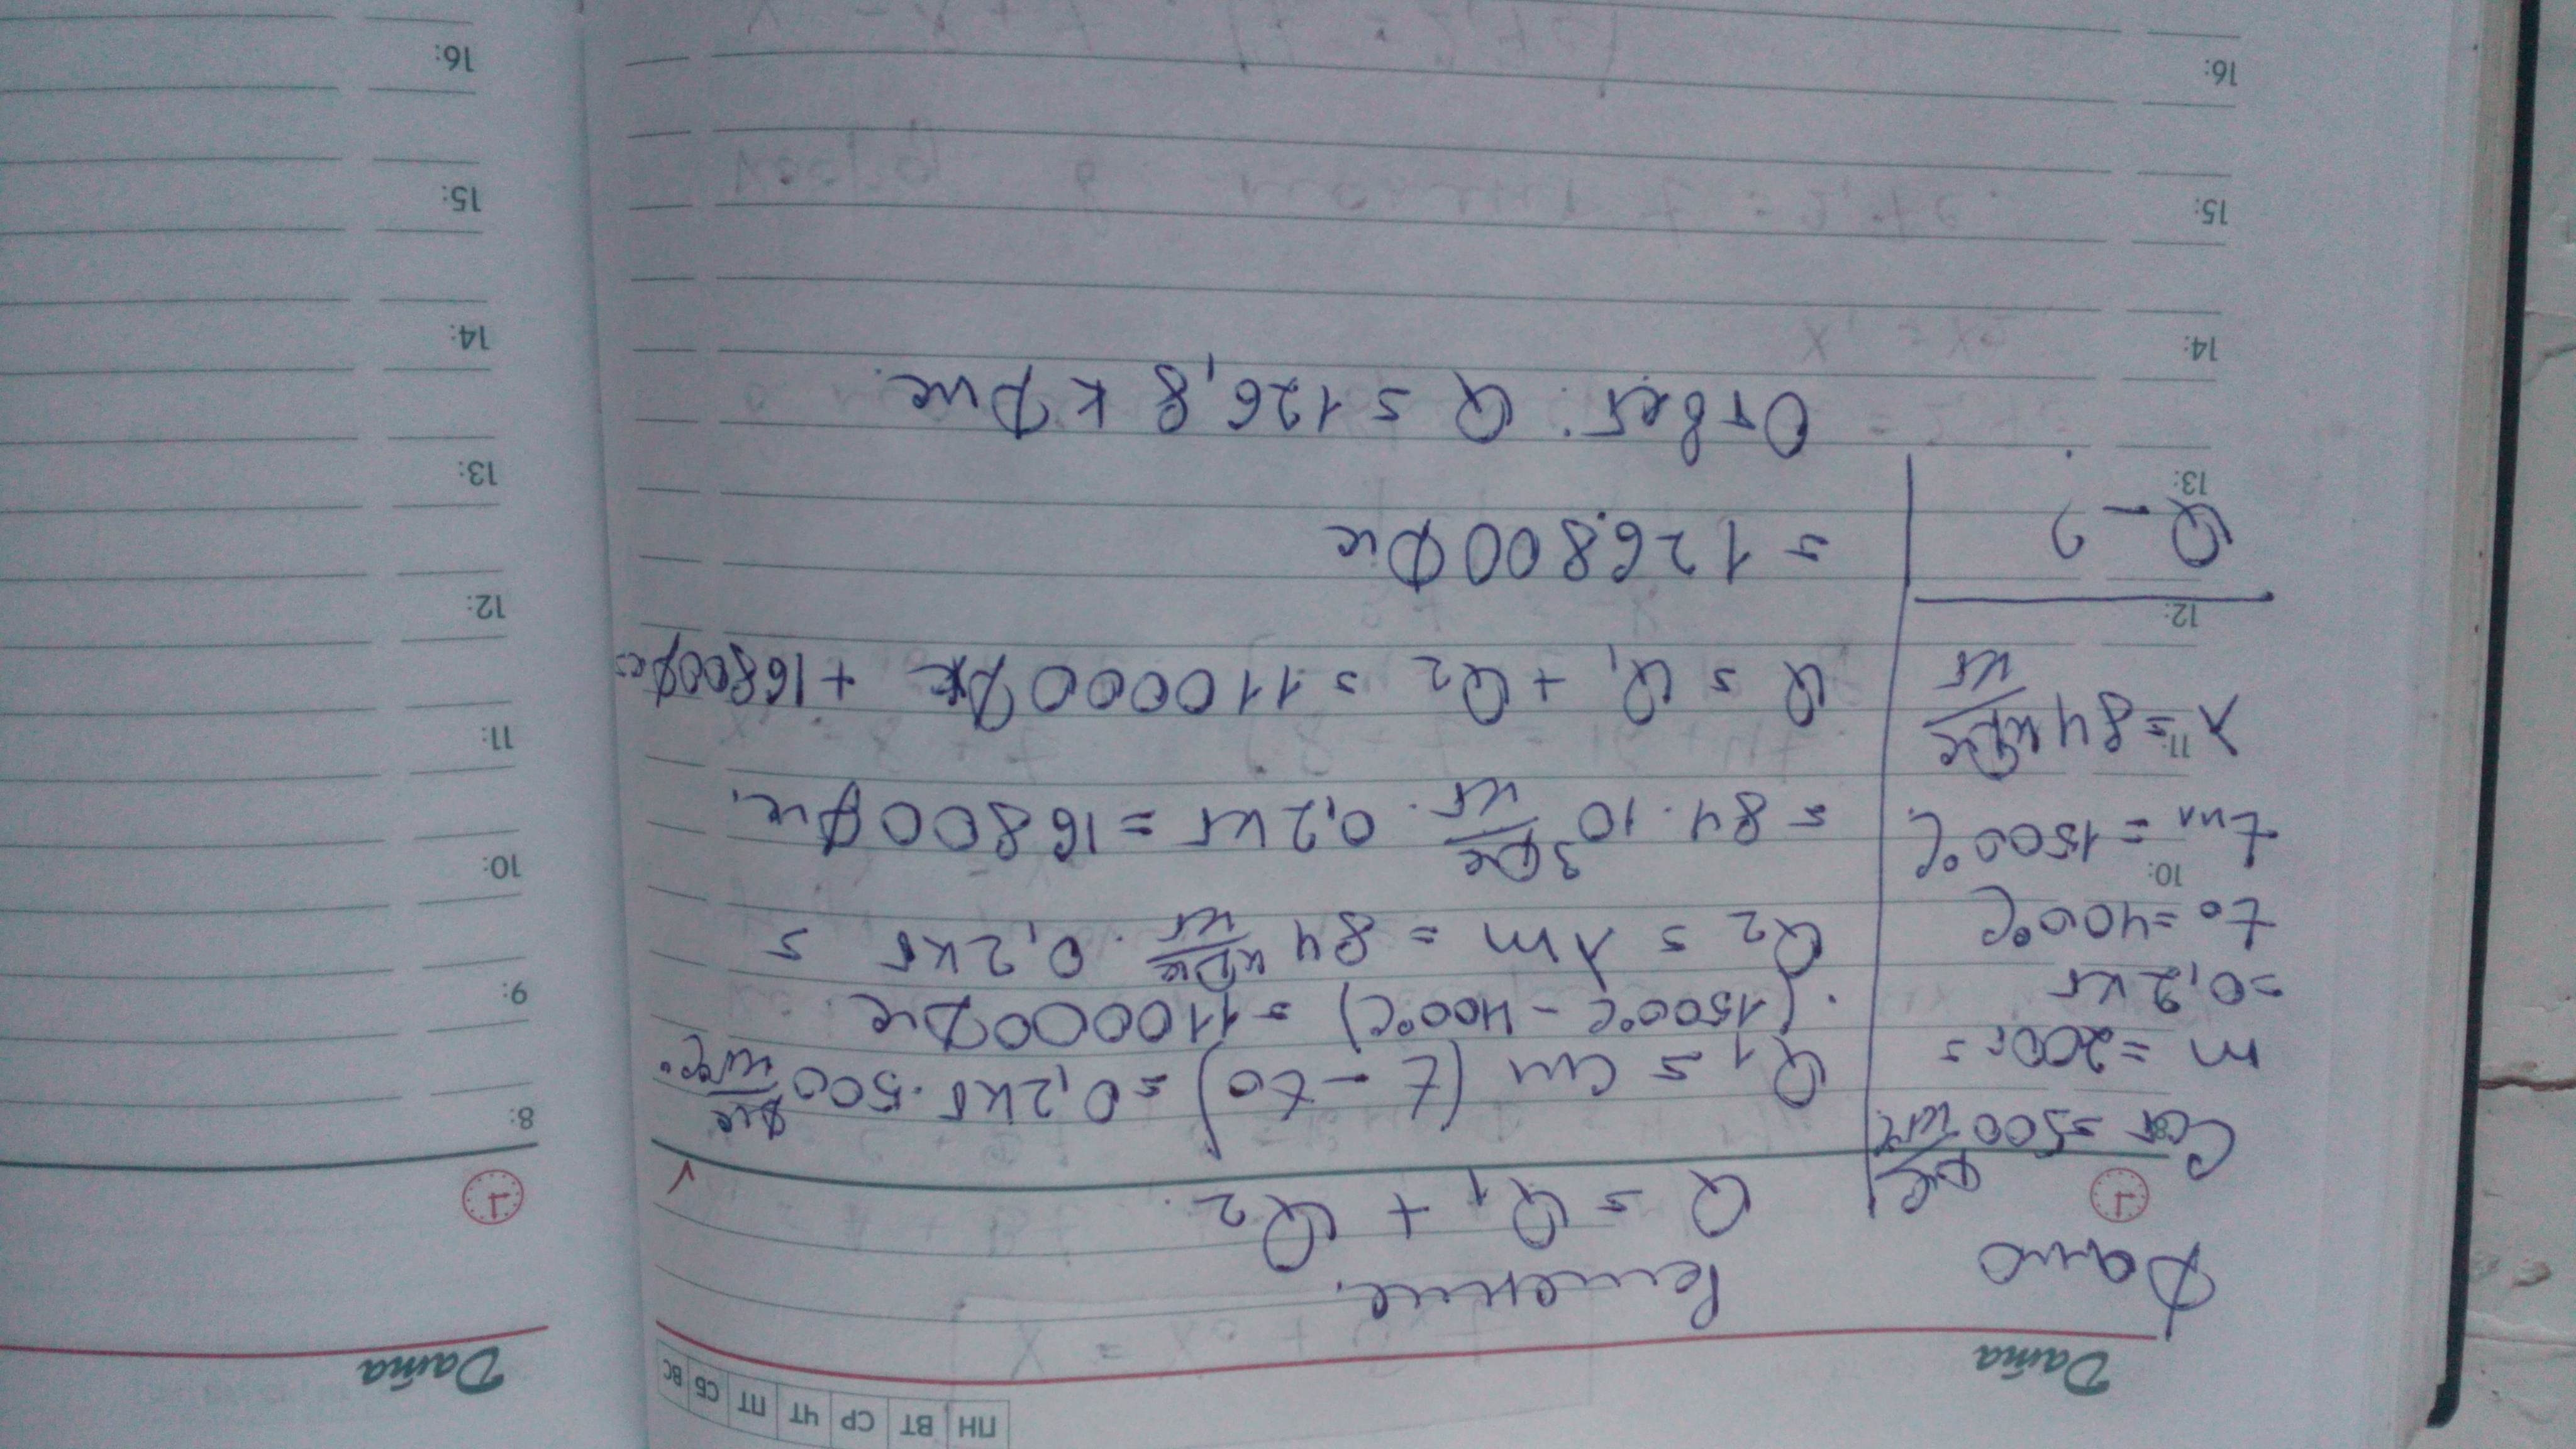 Дата
ПН ВТ СР ЧТ ПТ СБ ВС
Дано
Решение.
Q = Q1 + Q2.
Cст = 500 Дж/кг°C
m = 200г =
= 0,2 кг
t0 = 400°C
tпл = 1500°C
λ = 84 кДж/кг
Q - ?
Q1 = cm (t - t0) = 0,2 кг · 500 Дж/кг°C ·
· (1500°C - 400°C) = 110000 Дж
Q2 = λm = 84 кДж/кг · 0,2 кг =
= 84 · 10³ Дж/кг · 0,2 кг = 16800 Дж.
Q = Q1 + Q2 = 110000 Дж + 16800 Дж =
= 126800 Дж
Ответ: Q = 126,8 кДж.
10:
11:
12:
13:
14:
15:
16:
Дата
8:
9:
10:
11:
12:
13:
14:
15:
16: